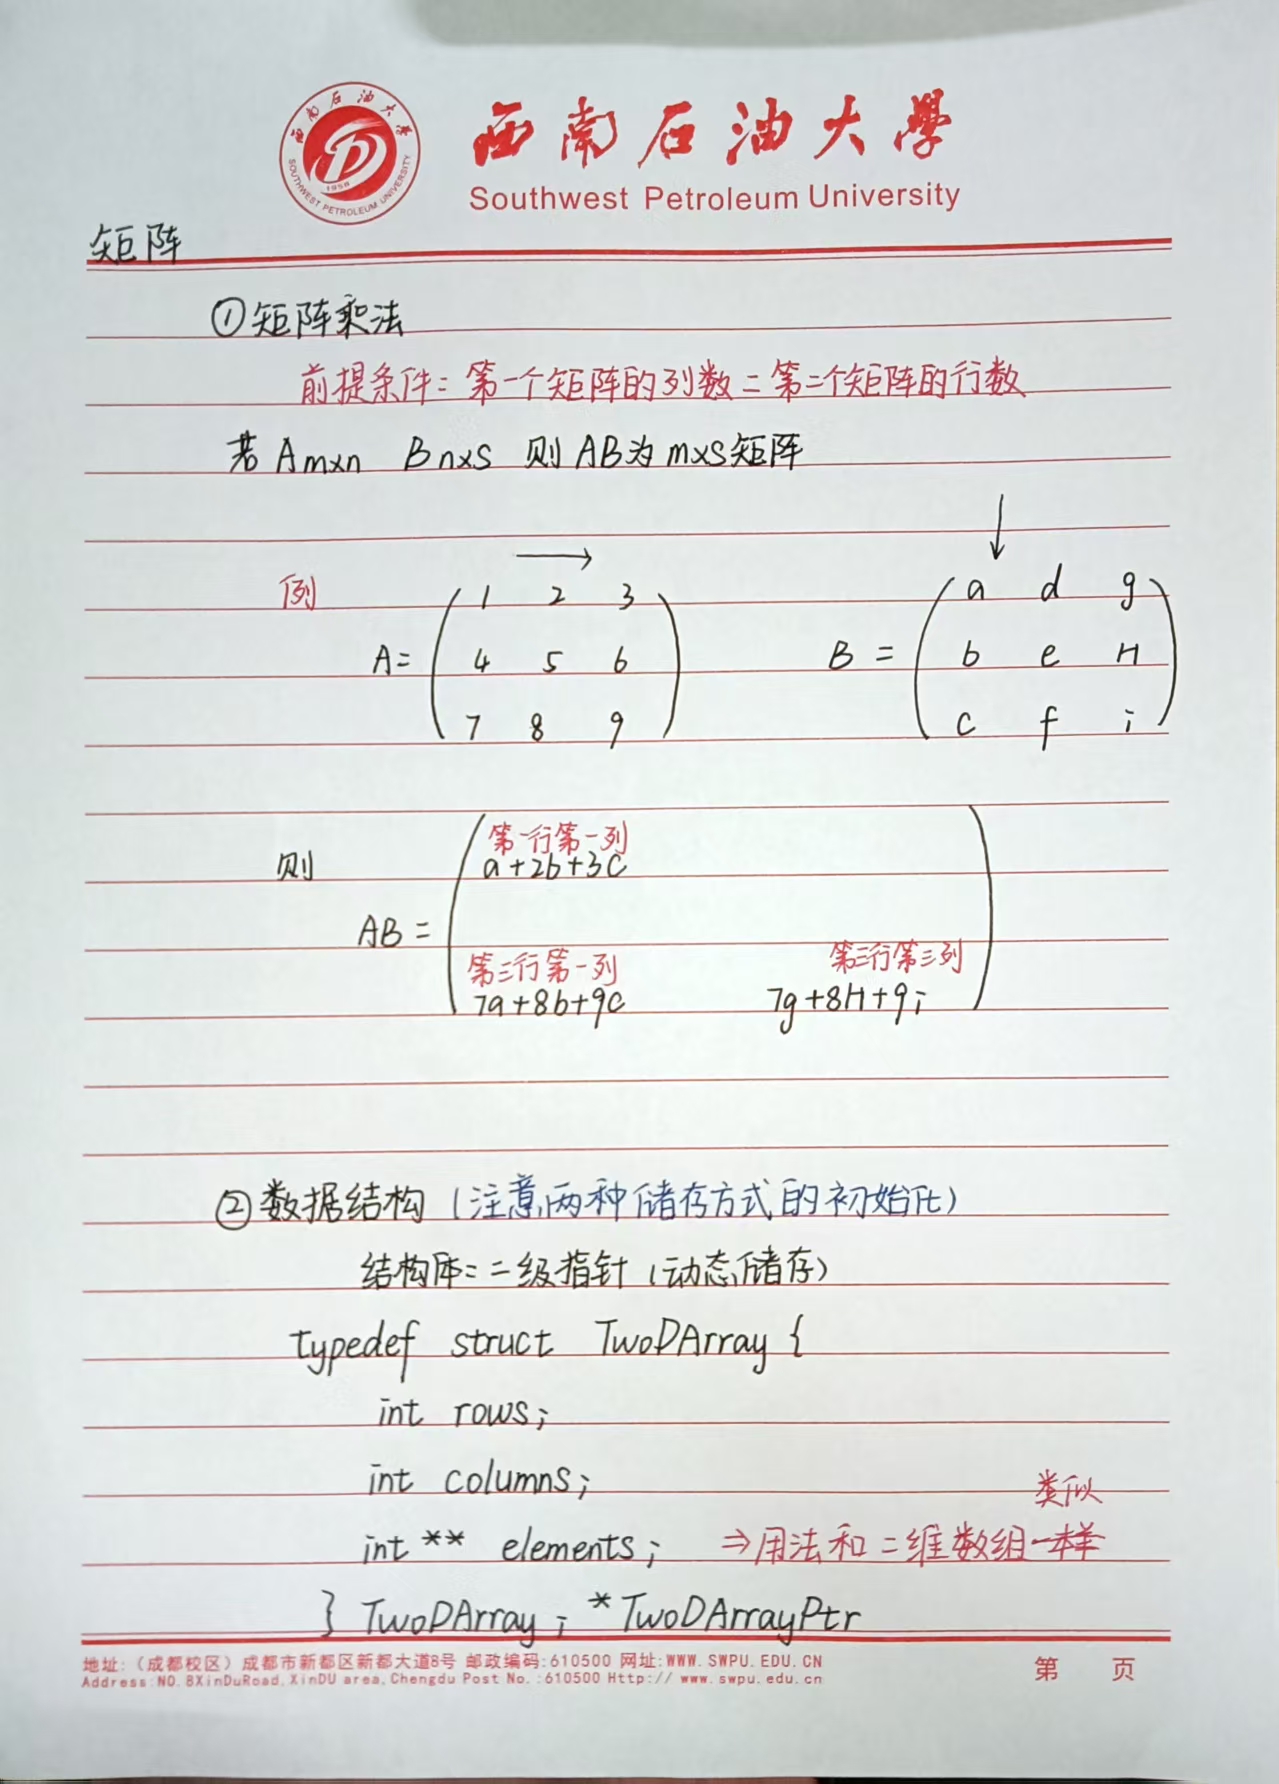 西南石油大學
SOUTHWEST PETROLEUM UNIVERSITY
1958
西南石油大學
Southwest Petroleum University
矩阵
①矩阵乘法
前提条件：第一个矩阵的列数=第二个矩阵的行数
若 Am×n Bn×s 则 AB为 m×s矩阵
例
→ ↓
1 2 3 a d g
A= 4 5 6 B = b e H
7 8 9 c f i
第一行第一列
则 a+2b+3c
AB =
第三行第一列 第三行第三列
7a+8b+9c 7g+8H+9i
②数据结构（注意两种储存方式的初始化）
结构体：二级指针（动态储存）
typedef struct TwoDArray {
int rows;
int columns;
类似
int ** elements; ⇒用法和二维数组一样
} TwoDArray ; *TwoDArrayPtr
地址:（成都校区）成都市新都区新都大道8号 邮政编码:610500 网址:WWW.SWPU.EDU.CN
Address:NO.8XinDuRoad,XinDU area,Chengdu Post No.:610500 Http:// www.swpu.edu.cn
第 页